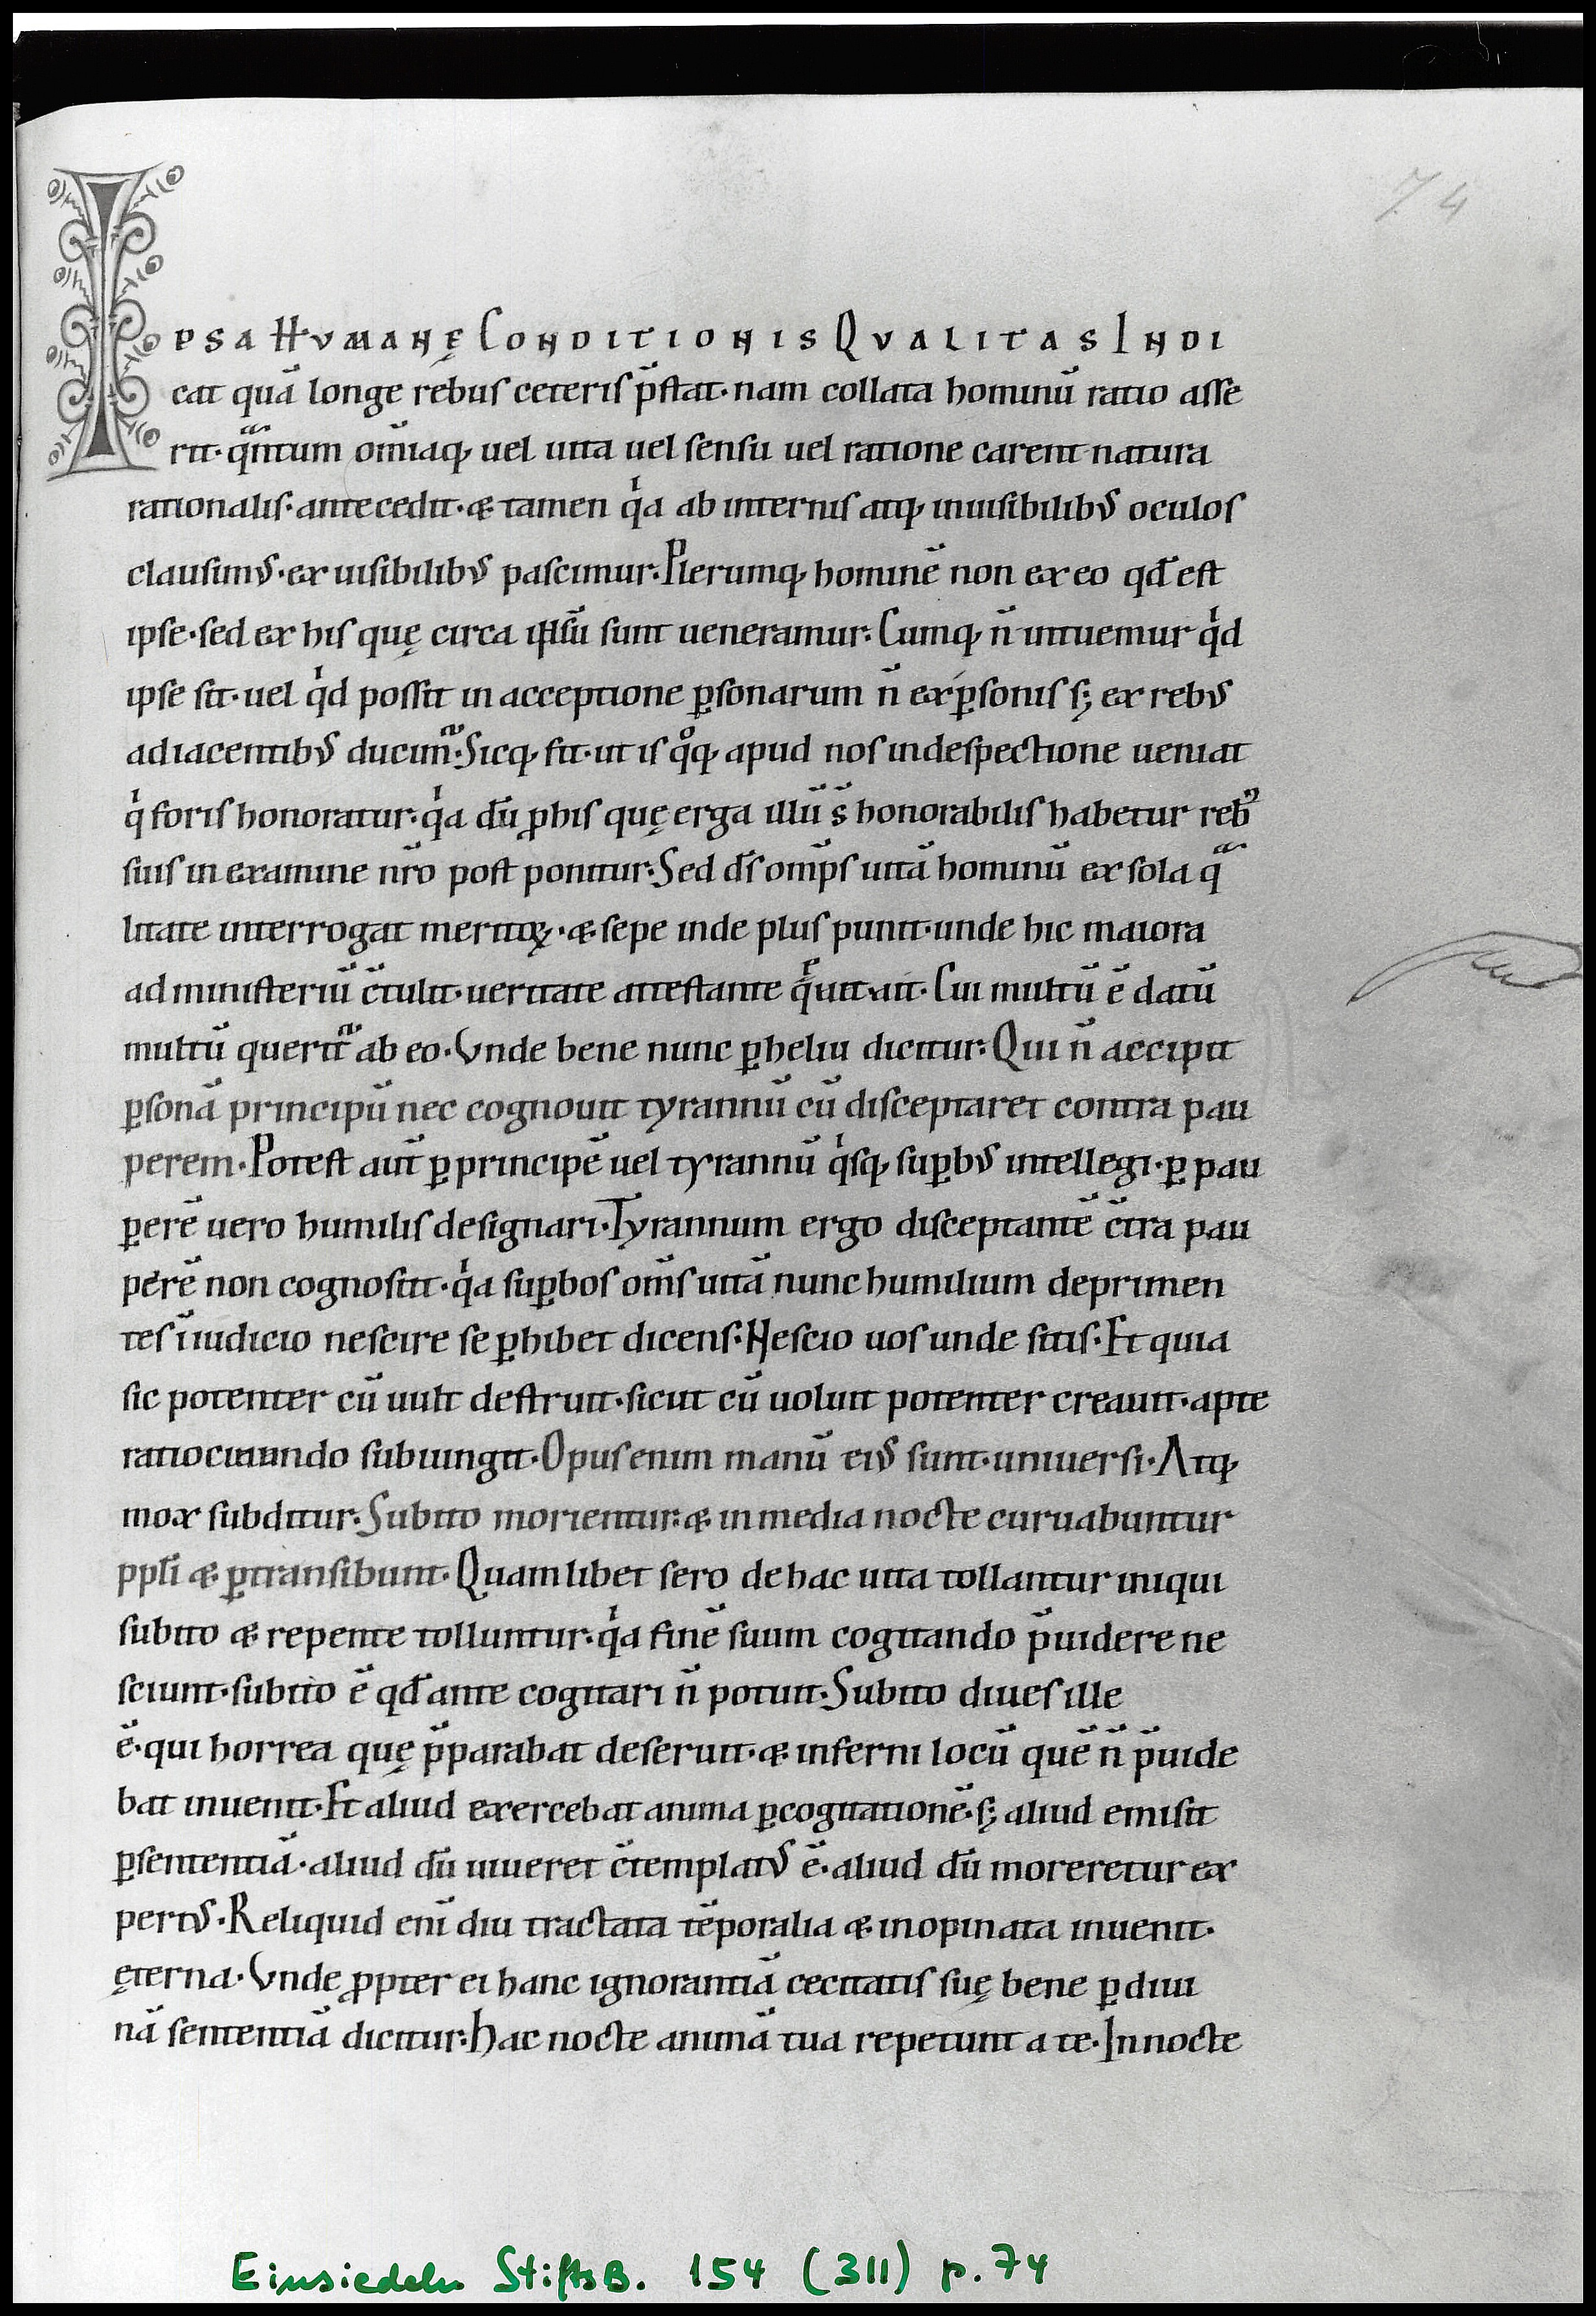 74
IPSA HVMANĘ CONDITIONIS QVALITAS INDI
cat quā longe rebus ceteris p̄stat. nam collata hominū ratio asse
rit. qᵃntum om̄iaq; uel uita uel sensu uel ratione carent natura
rationalis. antecedit. & tamen qⁱa ab internis atq; inuisibilibꝰ oculos
clausimꝰ. ex uisibilibꝰ pascimur. Plerumq; hominē non ex eo qđ est
ipse. sed ex his quę circa ipsū sunt ueneramur. Cumq; n̄ intuemur qⁱd
ipse sit. uel qⁱd possit in acceptione ꝑsonarum n̄ ex ꝑsonis s; ex rebꝰ
adiacentibꝰ ducim̄ᷣ. Sicq; fit. ut is qᵒq; apud nos indespectione ueniat
qⁱ foris honoratur. qⁱa dū ꝓ his quę erga illū s̄ honorabilis habetur rebꝰ
suis in examine nr̄o post ponitur. Sed ds̄ omp̄s uitā hominū ex sola qᵃ
litate interrogat meritoꝝ. & sepe inde plus punit. unde hic maiora
ad ministeriū c̄tulit. ueritate attestante q̄ ait. Cui multū ē datū
multū querit᷑ ab eo. Vnde bene nunc ꝑ heliu dicitur. Qui n̄ accipit
ꝑsonā principū nec cognouit tyrannū cū disceptaret contra pau
perem. Potest aut̄ ꝑ principē uel tyrannū qⁱsq; suꝑbꝰ intellegi. ꝑ pau
ꝑerē uero humilis designari. Tyrannum ergo disceptantē c̄tra pau
perē non cognoscit. qⁱa suꝑbos om̄s uitā nunc humilium deprimen
tes ī iudicio nescire se ꝑhibet dicens. Nescio uos unde sitis. Et quia
sic potenter cū uult destruit. sicut cū uoluit potenter creauit. apte
ratiocinando subiungit. Opus enim manū eiꝰ sunt uniuersi. Atq;
mox subditur. Subito morientur. & in media nocte curuabuntur
ppl̄i & ꝑtransibunt. Quamlibet sero de hac uita tollantur iniqui
subito & repente tolluntur. qⁱa finē suum cogitando p̄uidere ne
sciunt. subito ē qđ ante cogitari n̄ potuit. Subito diues ille
ē. qui horrea quę p̄parabat deseruit. & inferni locū quē n̄ p̄uide
bat inuenit. Et aliud exercebat anima ꝑ cogitationē. s; aliud emisit
ꝑ sententiā. aliud dū uiueret c̄templatꝰ ē. aliud dū moreretur ex
pertꝰ. Reliquid enī diu tractata tēporalia & inopinata inuenit.
ęterna. Vnde ꝓpter ei hanc ignorantiā cecitatis suę bene ꝑ diui
nā sententiā dicitur. Hac nocte animā tua repetunt a te. In nocte
Einsiedeln StiftsB. 154 (311) p. 74